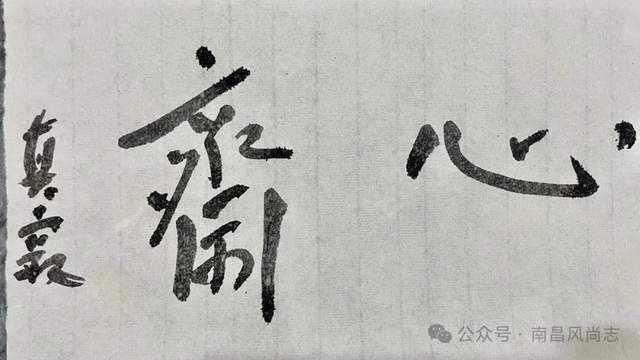 心齋
真寂
公众号 · 南昌风尚志